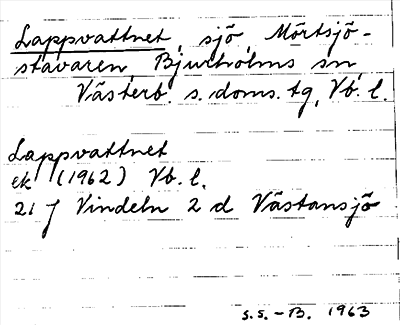 Lappvattnet, sjö, Mörtsjö-
stavaren, Bjurholms sn,
Västerb. s. doms. tg, Vb. l.
Lappvattnet
ek (1962) Vb. l.
21 J Vindeln 2 d Västansjö
S.S.-B. 1963